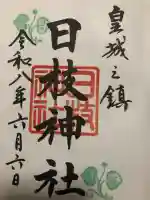 皇城之鎮
日枝神社
令和八年六月六日